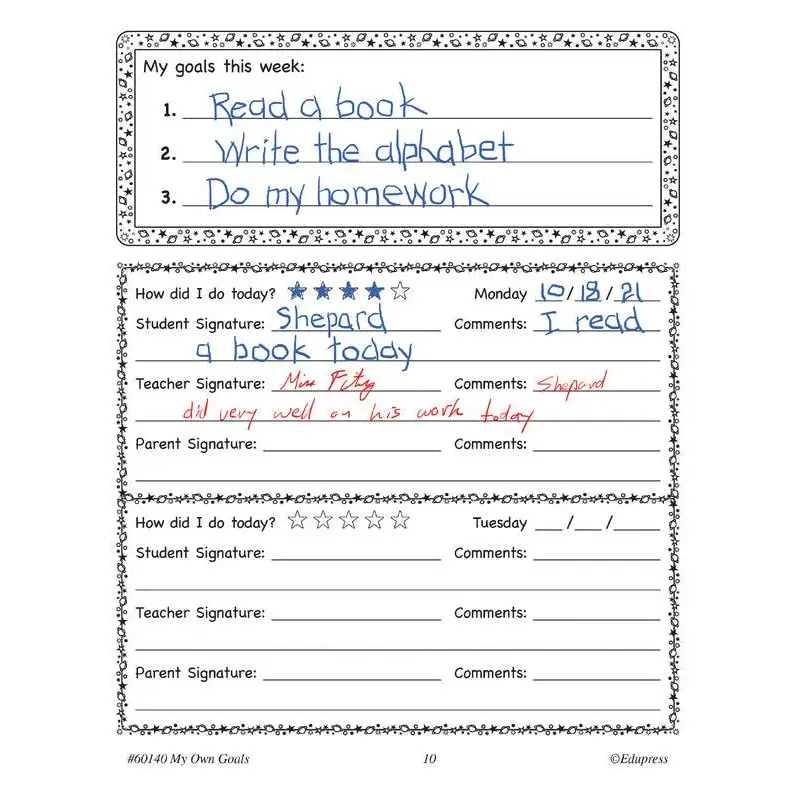 My goals this week:
1. Read a book
2. Write the alphabet
3. Do my homework
How did I do today? Monday 10/18/21
Student Signature: Shepard Comments: I read
a book today
Teacher Signature: Miss Comments: Shepard
did very well on his work today
Parent Signature: Comments:
How did I do today? Tuesday / /
Student Signature: Comments:
Teacher Signature: Comments:
Parent Signature: Comments:
#60140 My Own Goals 10 ©Edupress